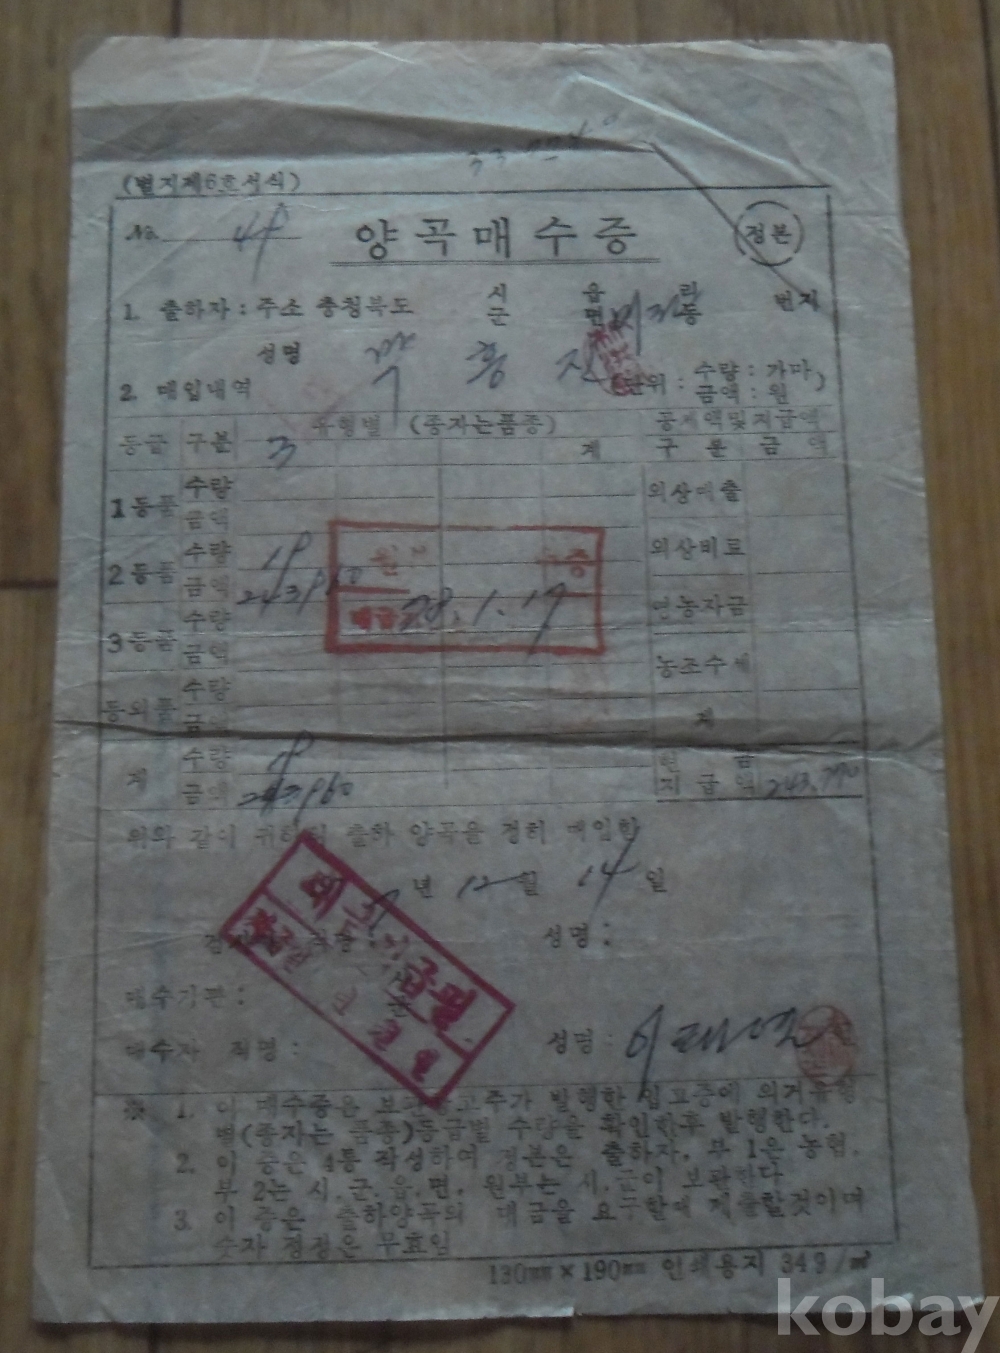 (별지제6호서식)
No. 양곡매수증 정본
1. 출하자 : 주소 충청북도 시 군 읍 면 리 동 번지
성명 박 흥
2. 매입내역 (단위 : 수량 : 가마, 금액 : 원)
유형별 (종자는품종) 공제액및지급액
등급 구분 3 계 구 분 금 액
1등품 수량 외상매출
금액
2등품 수량 외상비료
금액 243,960 영농자금
3등품 수량
금액 농조수세
등외품 수량
금액 계
계 수량 현 금
금액 243,960 지 급 액 243,790
대금 78.1.17
위와 같이 귀하의 출하 양곡을 정히 매입함
7년 12월 14일
성명 :
매수기관 :
매수자 직명 : 성명 : 이
※ 1. 이 매수증은 보관창고주가 발행한 입고증에 의거유형
별(종자는 품종)등급별 수량을 확인한후 발행한다.
2. 이 증은 4통 작성하여 정본은 출하자, 부 1은 농협,
부 2는 시.군.읍.면. 원부는 시.군이 보관한다
3. 이 증은 출하양곡의 대금을 요구할때 제출할것이며
숫자 정정은 무효임
130㎜×190㎜ 인쇄용지 34g/㎡
kobay